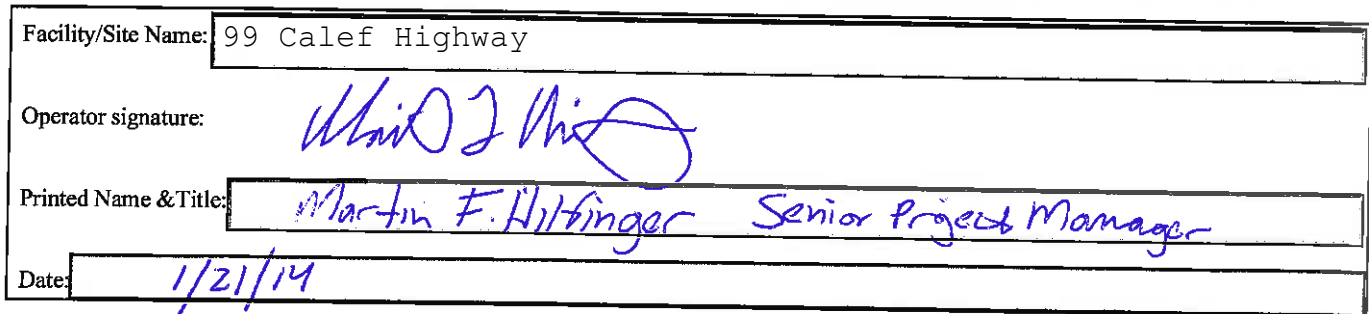 Facility/Site Name: 99 Calef Highway
Operator signature:
Printed Name &Title: Martin F. Hilfinger Senior Project Manager
Date: 1/21/14